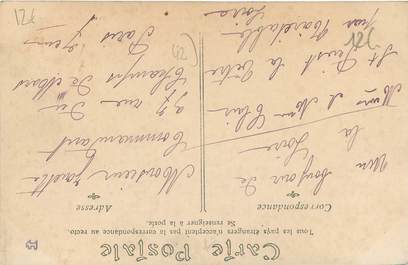 Carte Postale
Tous les pays étrangers n'acceptent pas la correspondance au recto.
Se renseigner à la poste.
Correspondance
Adresse
Un bonjour de
la Loire
Mr et Mme Clair
St Priest la
Loire
Monsieur
Commandant
27 rue du
Champs de Mars
Paris 7em